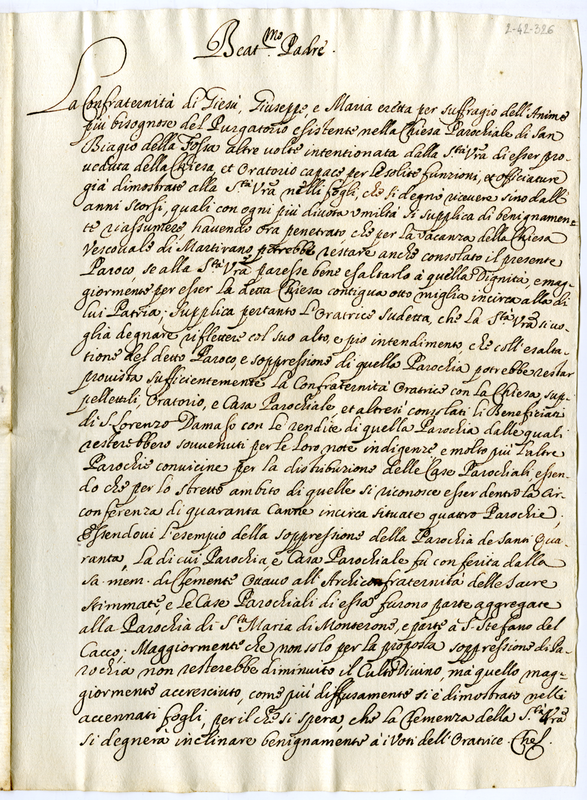 2-42-326
Beat.mo Padre.
La Confraternità di Giesù, Giuseppe, e Maria eretta per suffragio dell'Anime
più bisognose del Purgatorio esistente nella Chiesa Parochiale di San
Biagio della Fossa altre volte intentionata dalla S.tà Vrã di esser pro-
veduta della Chiesa, et Oratorio capace per le solite funzioni, et offitiature
già dimostrate alla S.tà Vrã nelli fogli, che si degnò ricevere sino dall'
anni scorsi, quali con ogni più divota umiltà si supplica di benignamen=
te riassumere havendo ora penetrato, che per la vacanza della Chiesa
Vescovale di Martirano potrebbe restare anche consolato il presente
Paroco, se alla S.tà Vrã paresse bene esaltarlo à quella Dignità, e mag-
giormente per esser la detta Chiesa contigua otto miglia incirca alla di
lui Patria; Supplica pertanto l'Oratrice sudetta, che la S.tà Vrã si vo-
glia degnare riflettere col suo alto, e pio intendimento che coll'esalta-
tione del detto Paroco, e soppressione di quella Parochia potrebbe restar
provista sufficientemente la Confraternità Oratrice con la Chiesa, sup-
pellettili, Oratorio, e Casa Parochiale, et altresi consolati li Beneficiati
di S. Lorenzo Damaso con le rendite di quella Parochia dalle quali
resterebbero souvenuti per le loro note indigenze e molto più l'altre
Parochie convicine per la distributione delle Case Parochiali essen-
do che per lo stretto ambito di quelle si riconosce esser dentro la cir-
conferenza di quaranta Canne incirca situate quattro Parochie;
Essendoui l'esempio della soppressione della Parochia de Santi Qua-
ranta, la di cui Parochia, e Casa Parochiale fu conferita dalla
sa: mem: di Clemente Ottavo all'Archiconfraternità delle Sacre
Stimmate, e le Case Parochiali di essa furono parte aggregate
alla Parochia di S.ta Maria di Monserone, e parte à S. Stefano del
Cacco; Maggiormente che non solo per la proposta soppressione di Pa-
rochia non resterebbe diminuito il Culto Divino, mà quello mag-
giormente accresciuto, come più diffusamente si è dimostrato nelli
accennati fogli, per il che si spera, che la Clemenza della S.tà Vrã
si degnerà inclinare benignamente à i Voti dell'Oratrice. Che